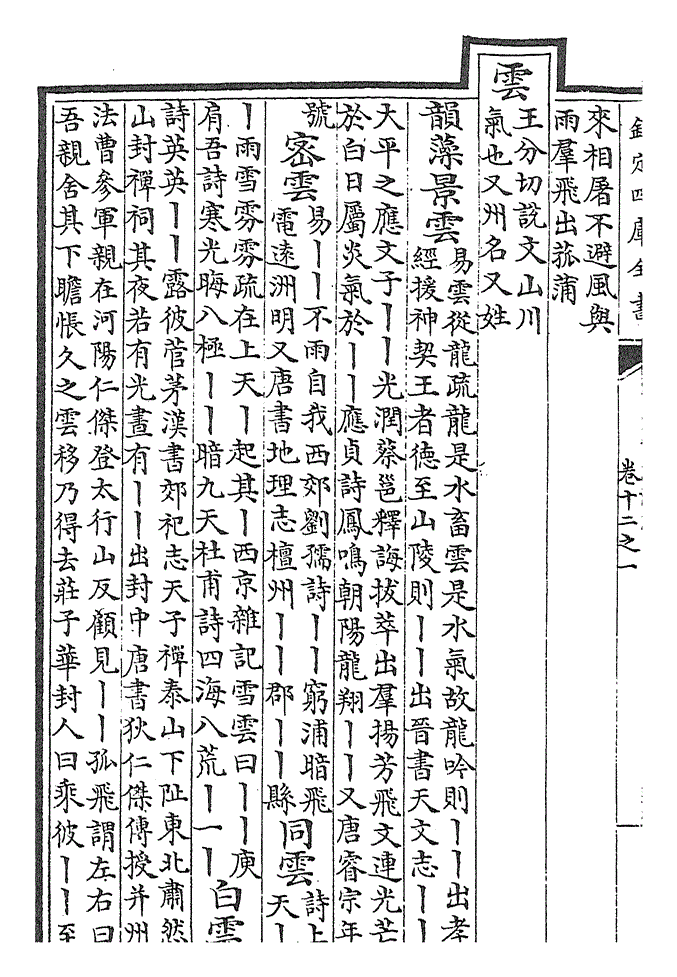 欽定四庫全書
卷十二之一
來相屠不避風與
雨羣飛出菰蒲
雲
王分切說文山川
氣也又州名又姓
韻藻景雲
易雲從龍疏龍是水畜雲是水氣故龍吟則丨丨出孝
經援神契王者德至山陵則丨丨出晉書天文志丨丨
大平之應文子丨丨光潤蔡邕釋誨拔萃出羣揚芳飛文連光芒
於白日屬炎氣於丨丨應貞詩鳳鳴朝陽龍翔丨丨又唐睿宗年
號
密雲
易丨丨不雨自我西郊劉孺詩丨丨窮浦暗飛
電遠洲明又唐書地理志檀州丨丨郡丨丨縣
同雲
詩上
天丨
丨雨雪雰雰疏在上天丨起其丨西京雜記雪雲曰丨丨庾
肩吾詩寒光晦八極丨丨暗九天杜甫詩四海八荒丨一丨
白雲
詩英英丨丨露彼菅茅漢書郊祀志天子禪泰山下阯東北肅然
山封禪祠其夜若有光晝有丨丨出封中唐書狄仁傑傳授并州
法曹參軍親在河陽仁傑登太行山反顧見丨丨孤飛謂左右曰
吾親舍其下瞻悵久之雲移乃得去莊子華封人曰乘彼丨丨至